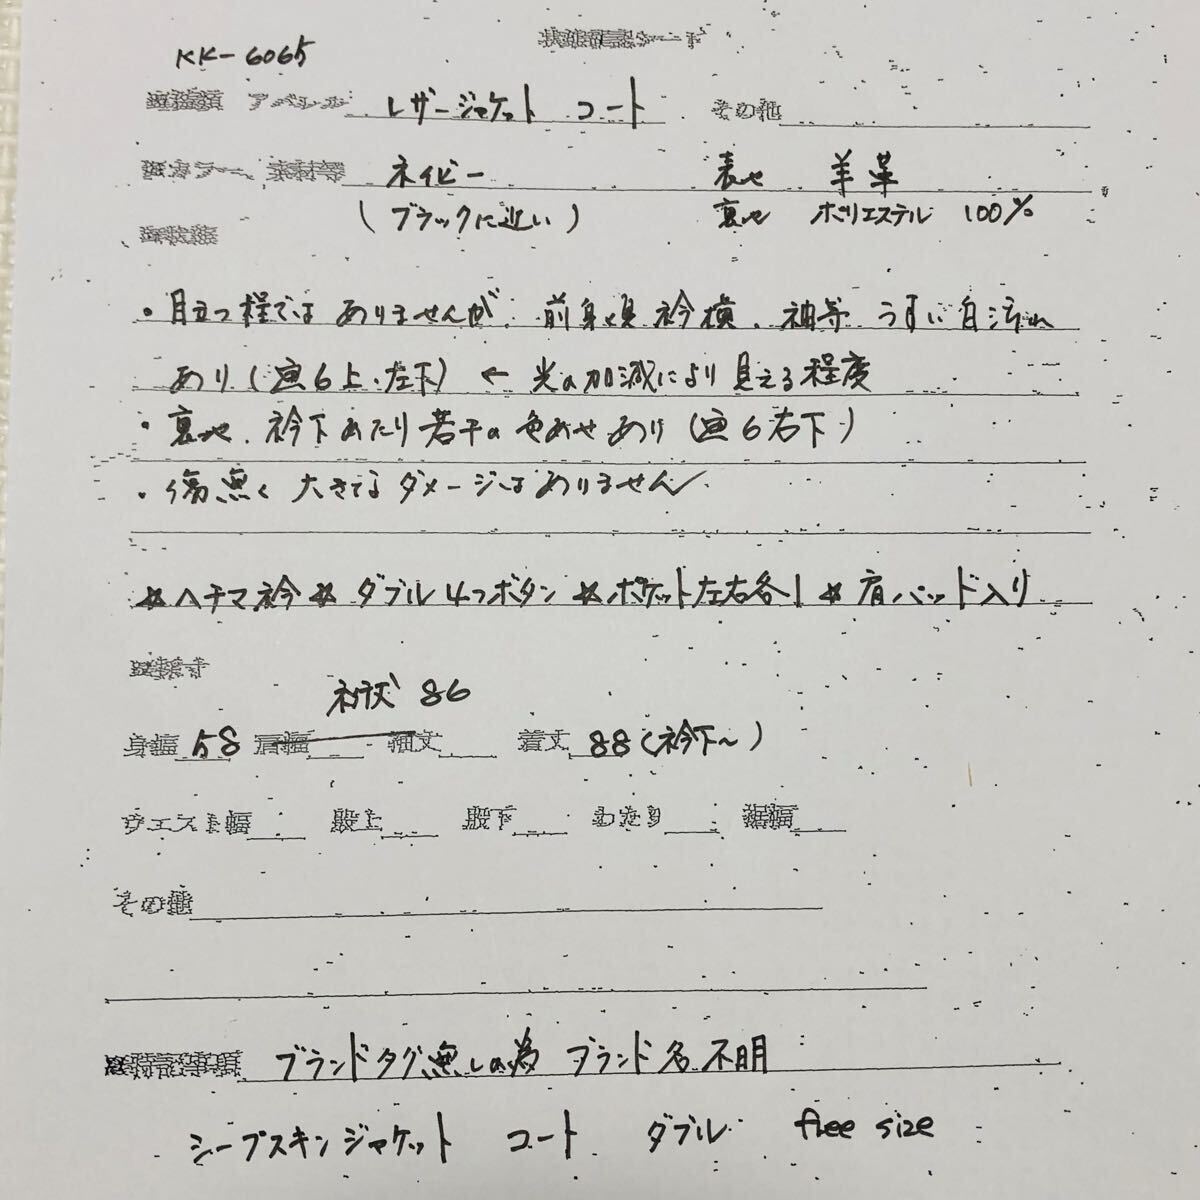 状態確認シート
KK-6065
アパレル レザージャケット コート その他
カラー、素材等 ネイビー 表地 羊革
(ブラックに近い) 裏地 ポリエステル 100%
状態
・目立つ程ではありませんが、前身頃 衿横、袖等 うすい白汚れ
あり(画6上、左下) ← 光の加減により見える程度
・裏地、衿下あたり若干の色あせあり(画6右下)
・傷無く 大きなダメージはありません
☆ヘチマ衿 ☆ダブル4つボタン ☆ポケット左右各1 ☆肩パッド入り
裄丈 86
身幅 58 肩幅 袖丈 着丈 88(衿下〜)
ウエスト幅 股上 股下 わたり 裾幅
その他
特記事項 ブランドタグ無しの為 ブランド名不明
シープスキンジャケット コート ダブル free size